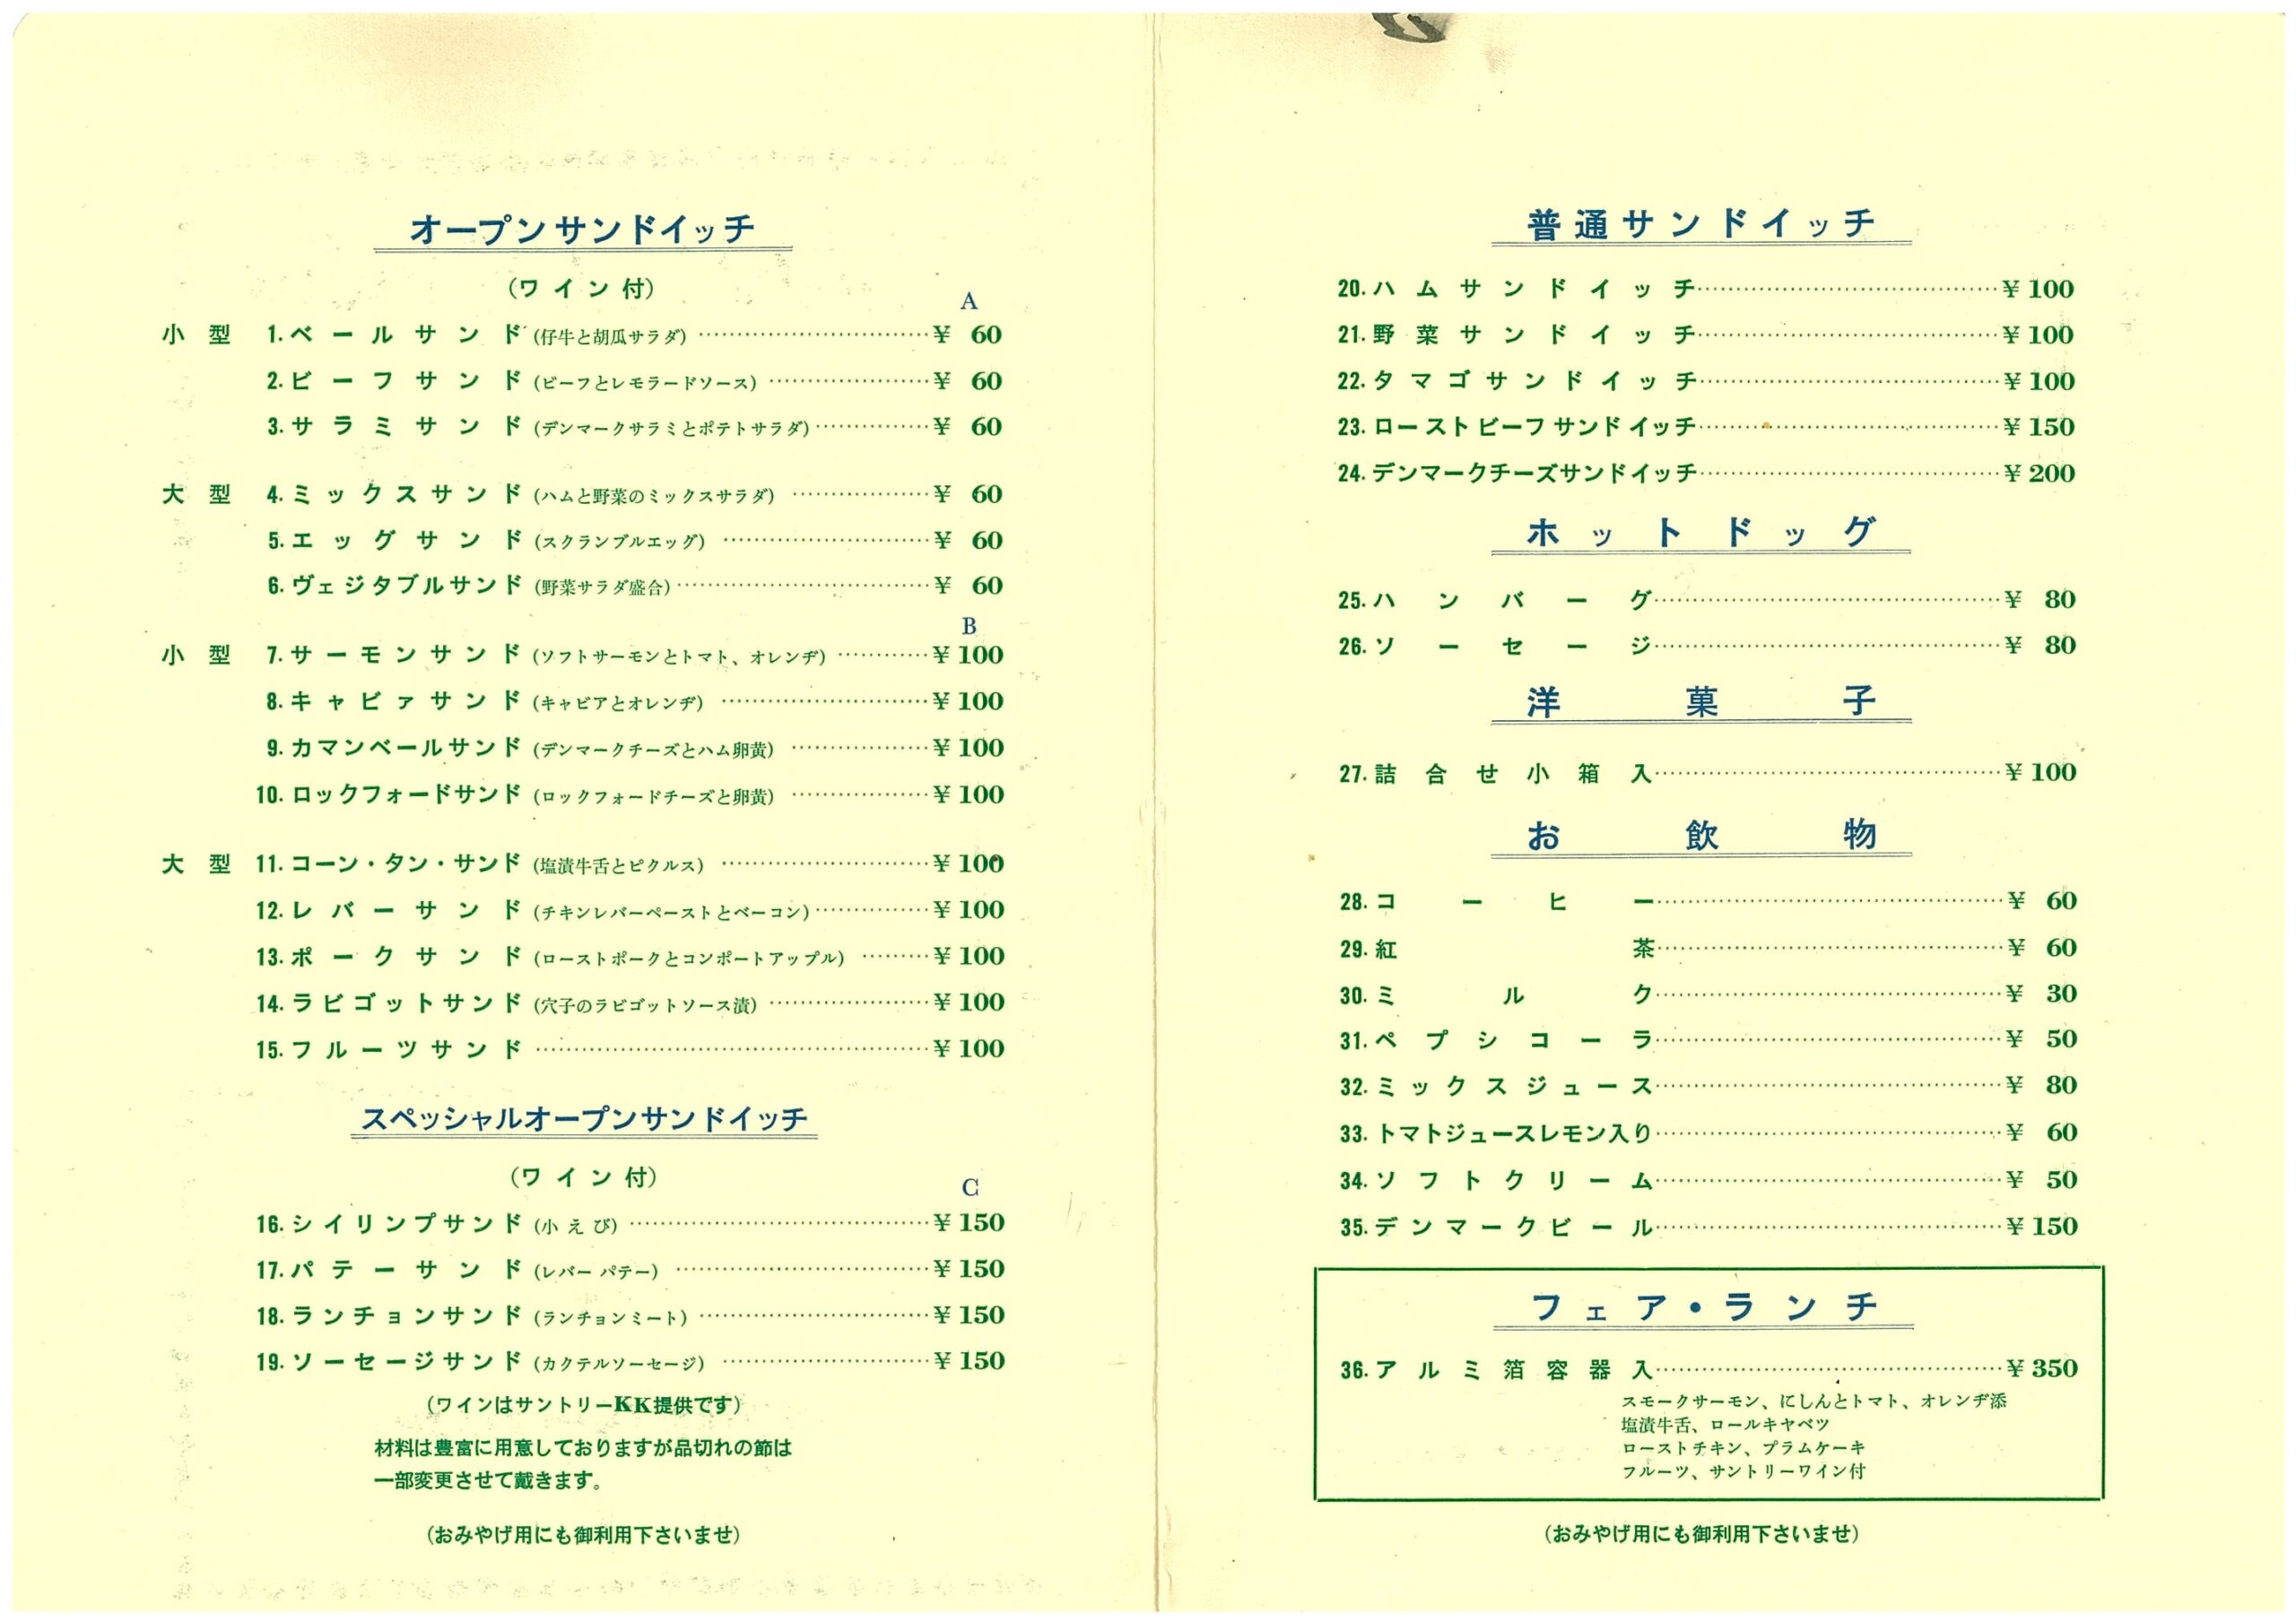 オープンサンドイッチ
(ワイン付)
A
小型 1.ベールサンド(仔牛と胡瓜サラダ)……¥ 60
2.ビーフサンド(ビーフとレモラードソース)……¥ 60
3.サラミサンド(デンマークサラミとポテトサラダ)……¥ 60
大型 4.ミックスサンド(ハムと野菜のミックスサラダ)……¥ 60
5.エッグサンド(スクランブルエッグ)……¥ 60
6.ヴェジタブルサンド(野菜サラダ盛合)……¥ 60
B
小型 7.サーモンサンド(ソフトサーモンとトマト、オレンヂ)……¥100
8.キャビァサンド(キャビアとオレンヂ)……¥100
9.カマンベールサンド(デンマークチーズとハム卵黄)……¥100
10.ロックフォードサンド(ロックフォードチーズと卵黄)……¥100
大型 11.コーン・タン・サンド(塩漬牛舌とピクルス)……¥100
12.レバーサンド(チキンレバーペーストとベーコン)……¥100
13.ポークサンド(ローストポークとコンポートアップル)……¥100
14.ラビゴットサンド(穴子のラビゴットソース漬)……¥100
15.フルーツサンド……¥100
スペッシャルオープンサンドイッチ
(ワイン付)
C
16.シイリンプサンド(小えび)……¥150
17.パテーサンド(レバーパテー)……¥150
18.ランチョンサンド(ランチョンミート)……¥150
19.ソーセージサンド(カクテルソーセージ)……¥150
(ワインはサントリーKK提供です)
材料は豊富に用意しておりますが品切れの節は
一部変更させて戴きます。
(おみやげ用にも御利用下さいませ)
普通サンドイッチ
20.ハムサンドイッチ……¥100
21.野菜サンドイッチ……¥100
22.タマゴサンドイッチ……¥100
23.ローストビーフサンドイッチ……¥150
24.デンマークチーズサンドイッチ……¥200
ホットドッグ
25.ハンバーグ……¥ 80
26.ソーセージ……¥ 80
洋菓子
27.詰合せ小箱入……¥100
お飲物
28.コーヒー……¥ 60
29.紅茶……¥ 60
30.ミルク……¥ 30
31.ペプシコーラ……¥ 50
32.ミックスジュース……¥ 80
33.トマトジュースレモン入り……¥ 60
34.ソフトクリーム……¥ 50
35.デンマークビール……¥150
フェア・ランチ
36.アルミ箔容器入……¥350
スモークサーモン、にしんとトマト、オレンヂ添
塩漬牛舌、ロールキヤベツ
ローストチキン、プラムケーキ
フルーツ、サントリーワイン付
(おみやげ用にも御利用下さいませ)